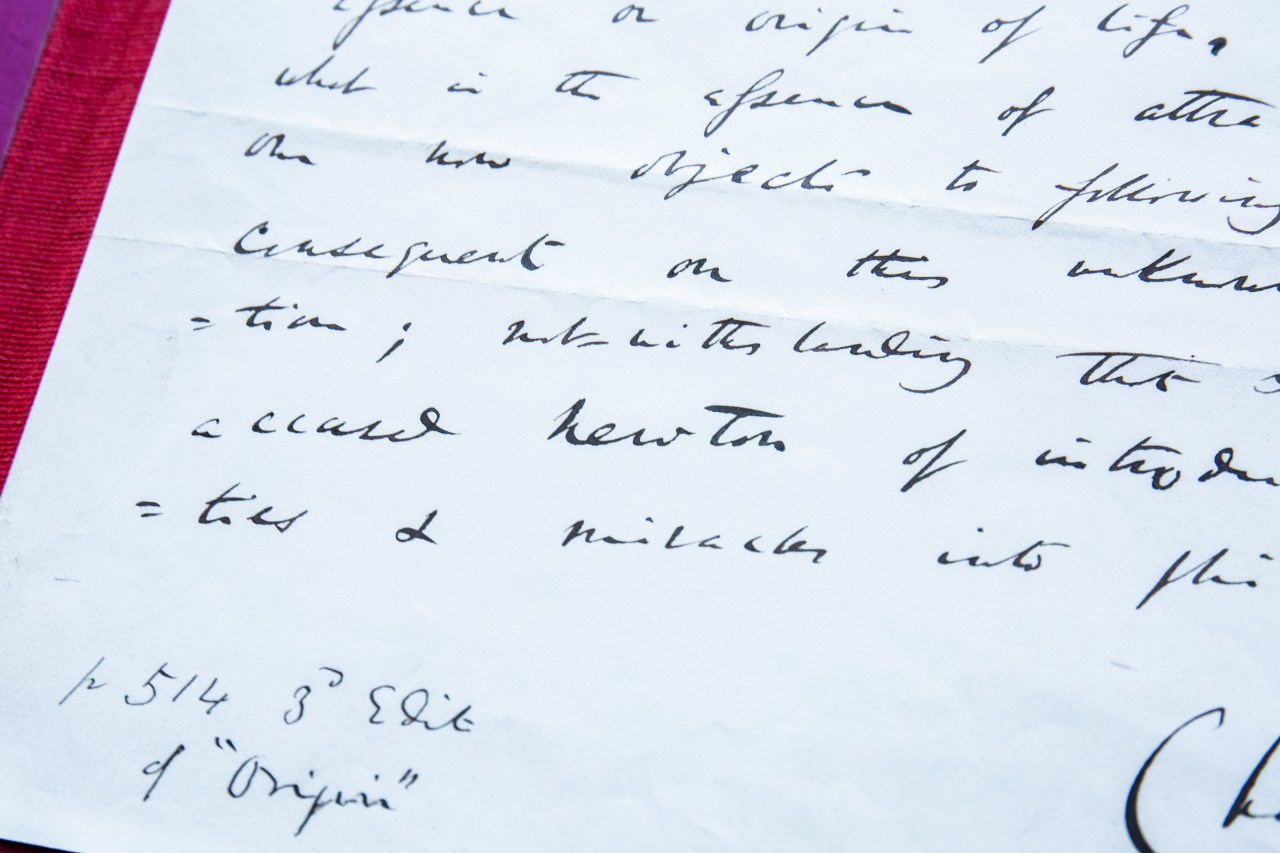 essence or origin of life,
what is the essence of attra
One now objects to following
consequent on this unknown
=tion; not-withstanding that
accused Newton of introdu
=ties & miracles into phi
p 514 3d Edit
of "Origin"
Cha